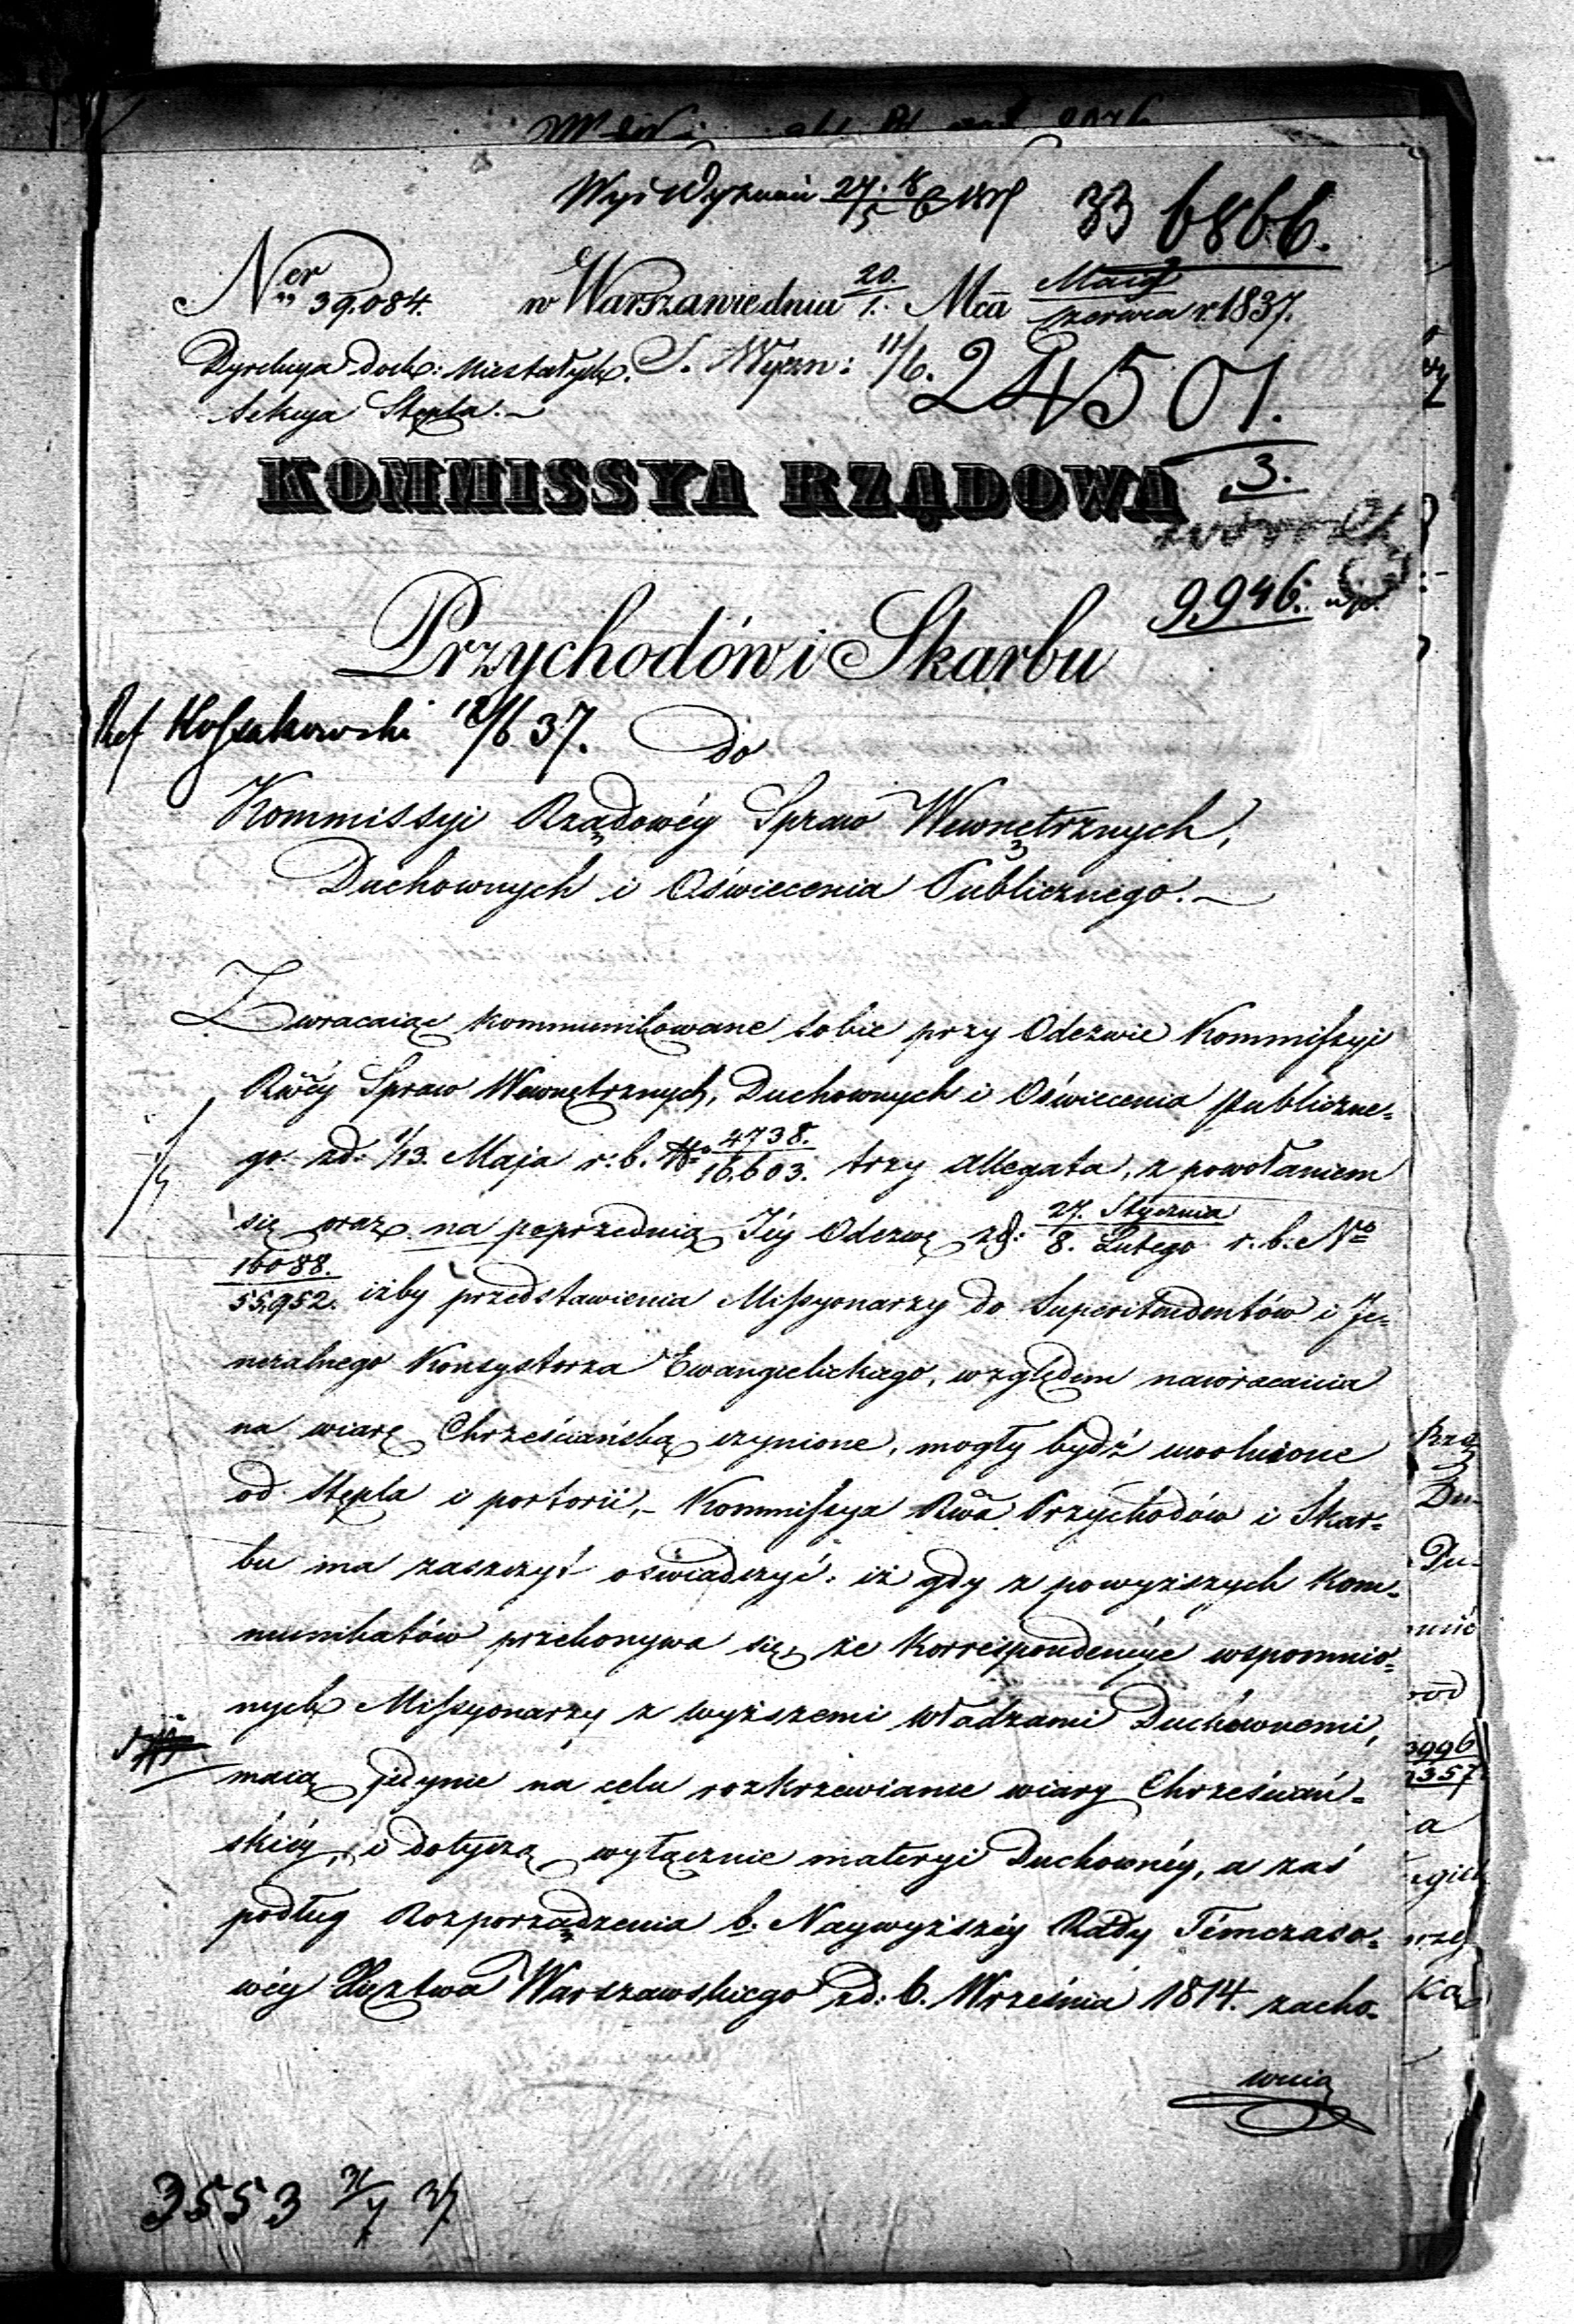 Wyż Wyznań 27/5 1837 33 6866.
Ner 39.084. w Warszawie dnia 20./1. Mca Maia/Czerwca r. 1837.
Dyrekcya Doch: Niestałych. S. Wyzn: 11/6. 24501.
Sekcya Stępla.
3.
KOMMISSYA RZĄDOWA
9,946.
Przychodów i Skarbu
Ref Kossakowski 12/6 37.
do
Kommissyi Rządowéy Spraw Wewnętrznych,
Duchownych i Oświecenia Publicznego.
Zwracaiąc kommunikowane sobie przy Odezwie Kommissyi
Rwéy Spraw Wewnętrznych, Duchownych i Oświecenia Publiczne-
go zd: 1/13. Maja r. b. No 4738./16.603. trzy Allegata, z powołaniem
się oraz na poprzednią Jéy Odezwę zd: 27. Stycznia/8. Lutego r. b. No
16088./55,952. iżby przedstawienia Missyonarzy do Superitendentów i Je-
neralnego Konsystorza Ewangielickiego, względem nawracania
na wiarę Chrześciańską czynione, mogły bydź uwolnione
od Stępla i portorii,- Kommissya Rwa Przychodów i Skar-
bu ma zaszczyt oświadczyć: iż gdy z powyższych Kom-
munikatów przekonywa się, że Korrespondencye wspomnio-
nych Missyonarzy z wyższemi władzami Duchównemi,
maią jedynie na celu rozkrzewianie wiary Chrześciań-
skiéy, i dotyczą wyłącznie materyi Duchownéy, a zaś
podług Rozporządzenia b. Naywyższéy Rady Tymczaso-
wéy Xięztwa Warszawskiego zd: 6. Września 1814. zacho-
wuią
3553 31/7 37